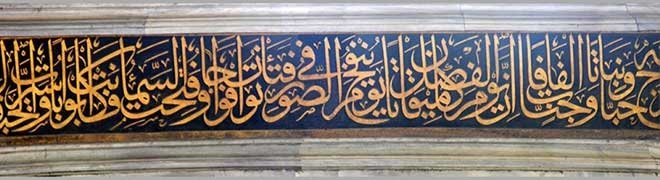 حبا ونباتا وجنات الفافا ان يوم الفصل كان ميقاتا يوم ينفخ في الصور فتأتون افواجا وفتحت السماء فكانت ابوابا وسيرت